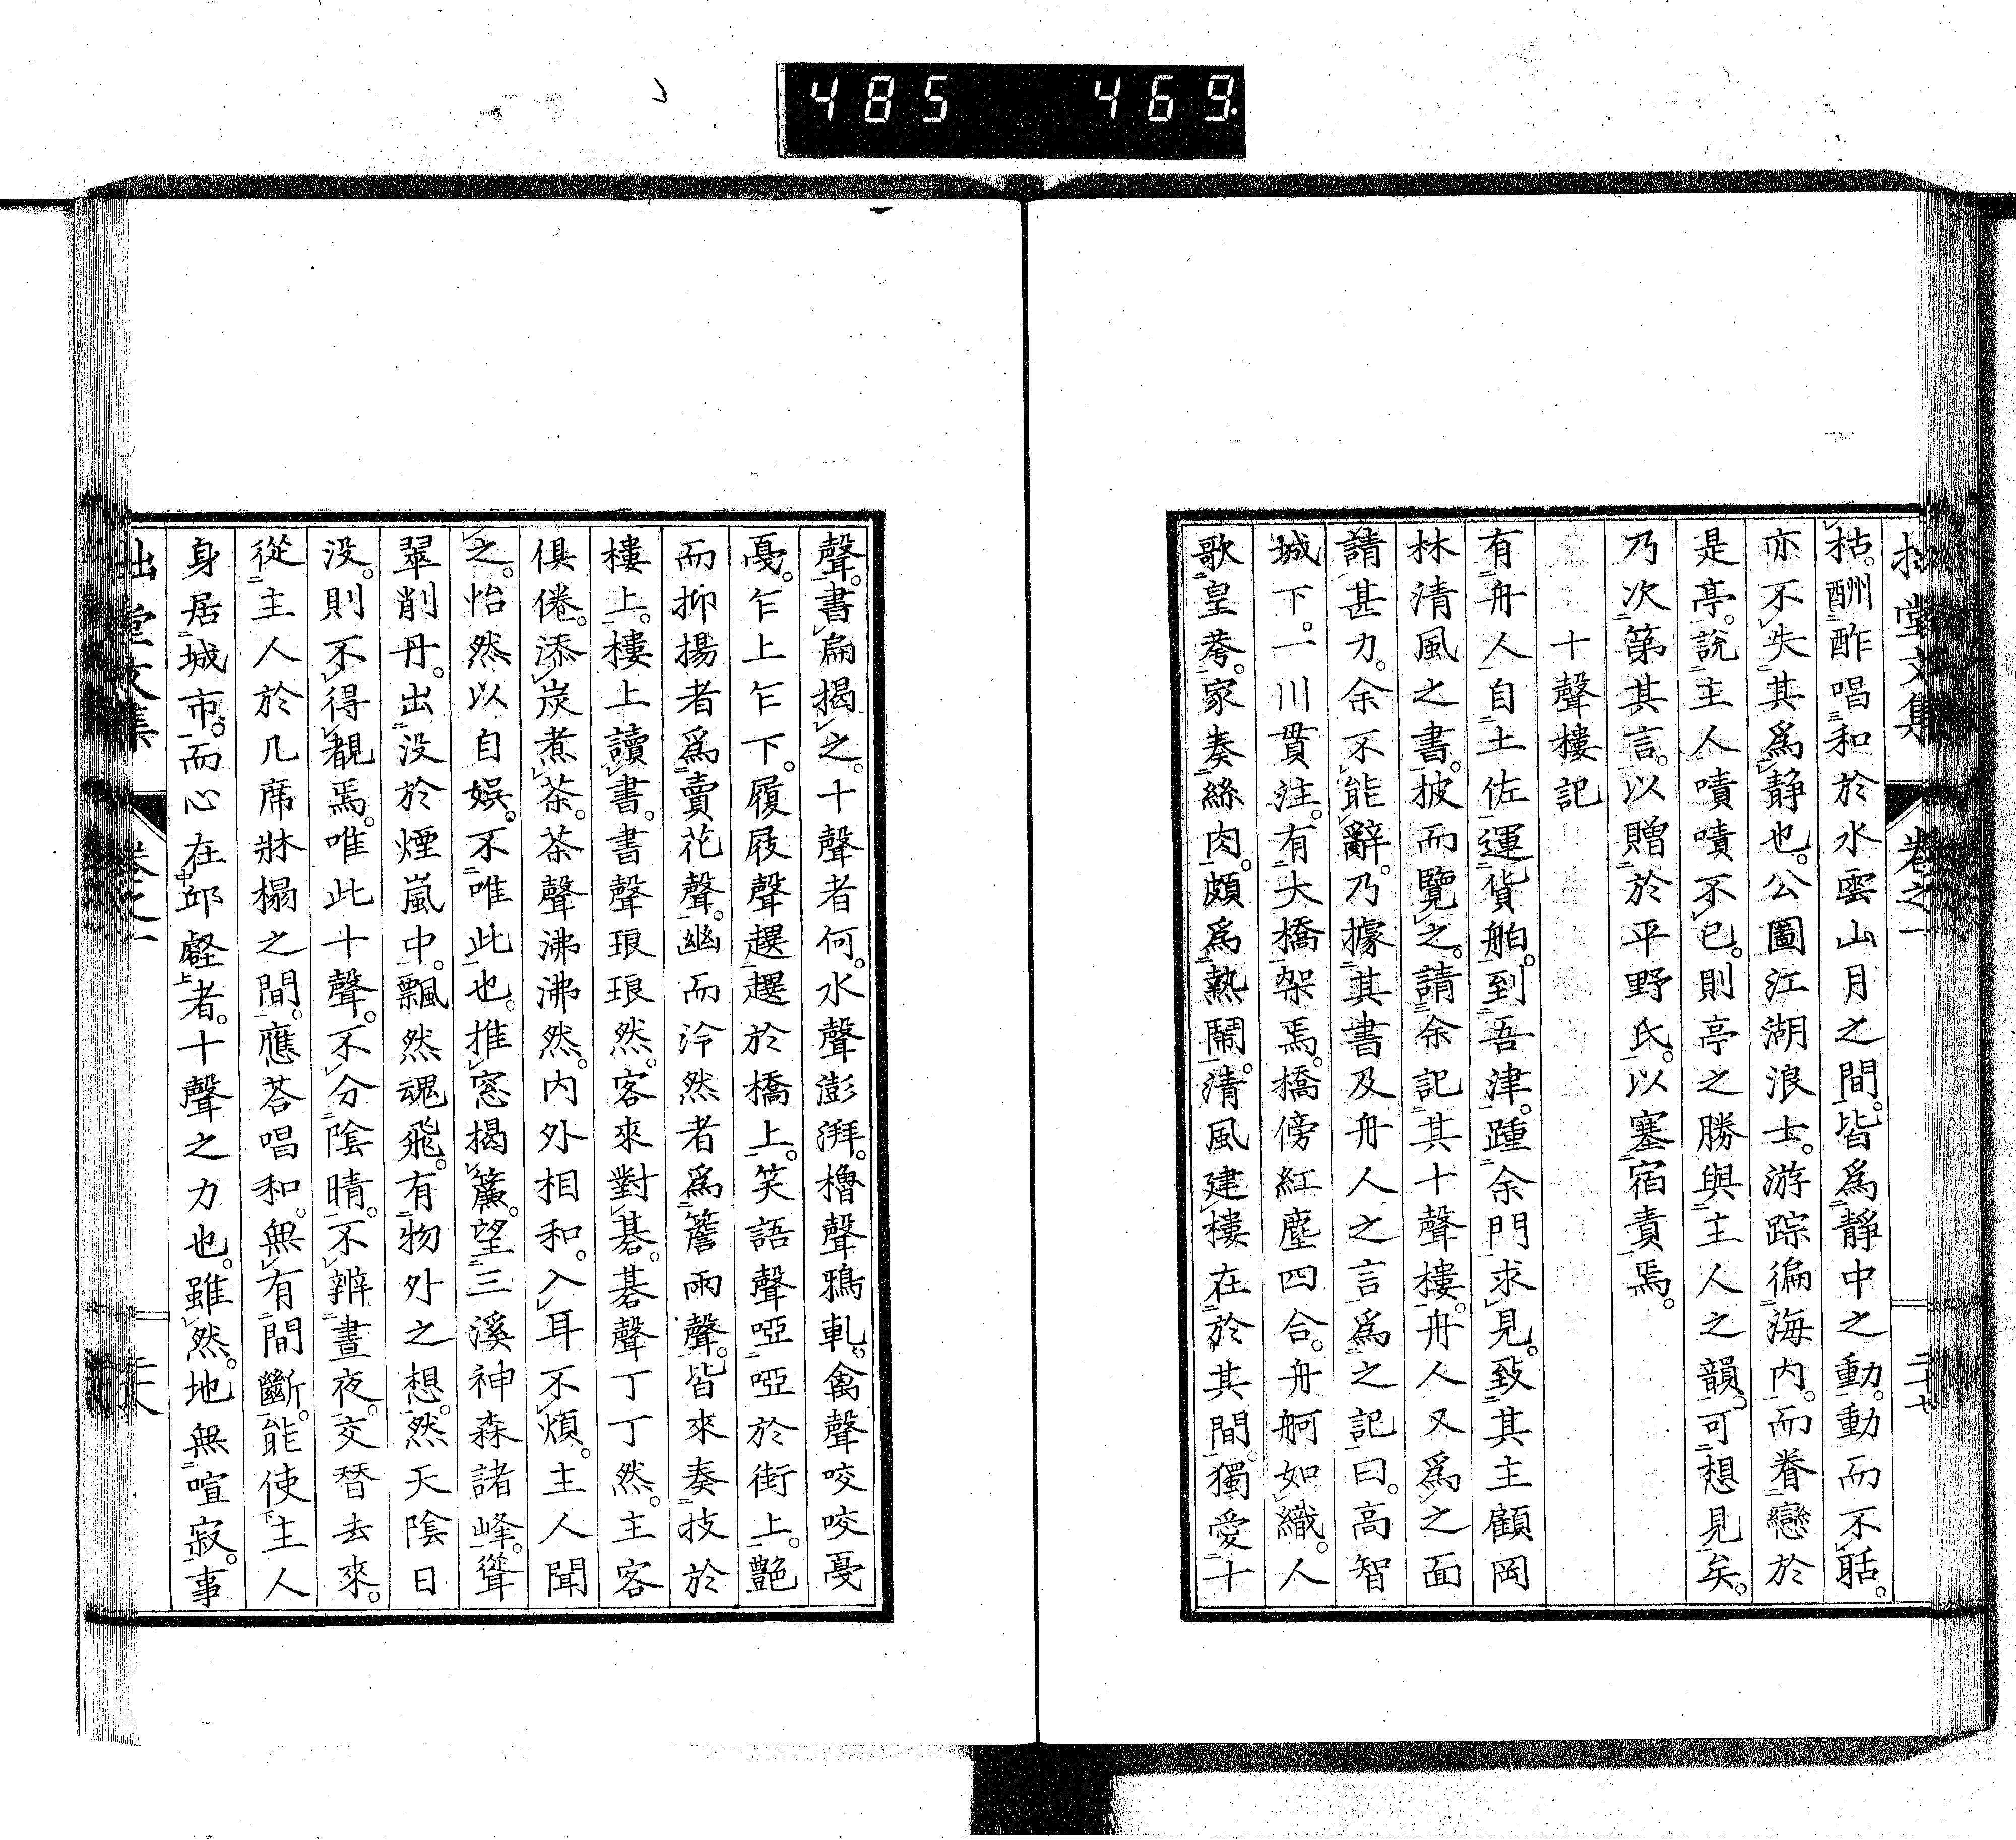 485 469
拙堂文集 卷之一 二十七
枯。酬酢唱和於水雲山月之間。皆爲靜中之動。動而不聒。
亦不失其爲靜也。公圖江湖浪士。游踪徧海内。而眷戀於
是亭。說主人嘖嘖不已。則亭之勝與主人之韻。可想見矣。
乃次第其言。以贈於平野氏。以塞宿責焉。
十聲樓記
有舟人自土佐運貨舶。到吾津。踵余門求見。致其主顧岡
林清風之書。披而覽之。請余記其十聲樓。舟人又爲之面
請甚力。余不能辭。乃據其書及舟人之言爲之記。曰。高智
城下。一川貫注。有大橋架焉。橋傍紅塵四合。舟舸如織。人
歌皇荂。家奏絲肉。頗爲熱鬧。清風建樓在於其間。獨愛十
聲。書扁揭之。十聲者何。水聲澎湃。櫓聲鴉軋。禽聲咬咬戞
戞。乍上乍下。履屐聲趯趯於橋上。笑語聲啞啞於街上。艷
而抑揚者爲賣花聲。幽而泠然者爲簷雨聲。皆來奏技於
樓上。樓上讀書。書聲琅琅然。客來對碁。碁聲丁丁然。主客
俱倦。添炭煮茶。茶聲沸沸然。内外相和。入耳不煩。主人聞
之。怡然以自娛。不唯此也。推窓揭簾。望三溪神森諸峰。聳
翠削丹。出没於煙嵐中。飄然魂飛。有物外之想。然天陰日
没。則不得觀焉。唯此十聲。不分陰晴。不辨晝夜。交替去來。
從主人於几席牀榻之間。應荅唱和。無有間斷。能使主人
身居城市。而心在邱壑者。十聲之力也。雖然。地無喧寂。事
拙堂文集 卷之一